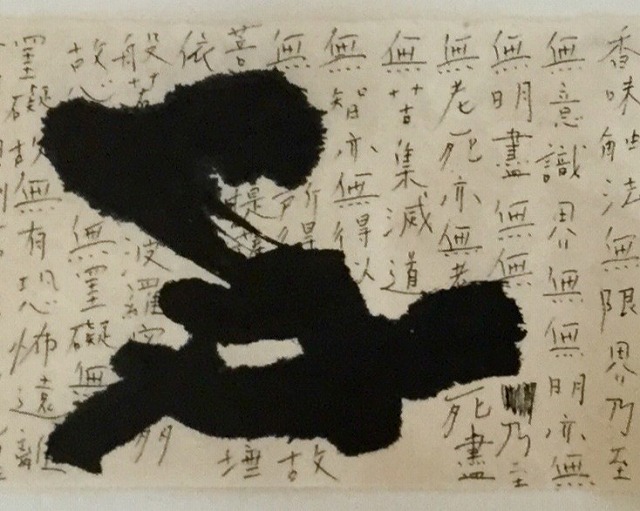 香味觸法無限界乃至
無意識界無無明亦無
無明盡無無乃至
無老死亦無老死盡
無苦集滅道
無智亦無得以
無所得故
菩提薩埵
依
般若波羅蜜多
故心無罣礙無
罣礙故無有恐怖遠離